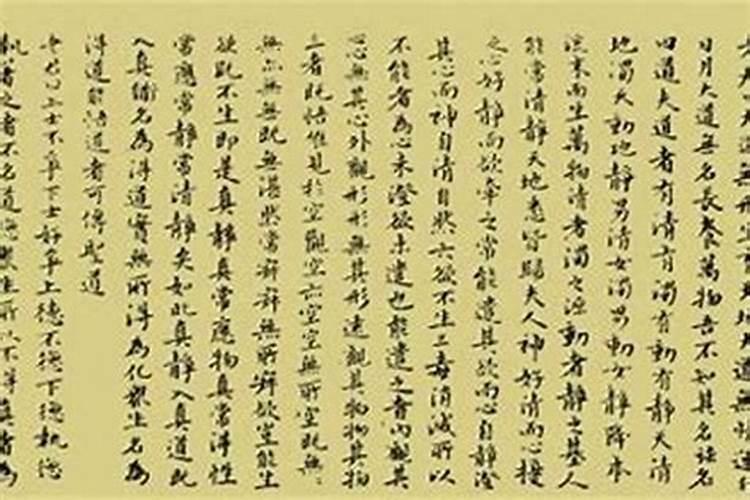 大道無情運
日月大道無名長養萬物吾不知其名強名
曰道夫道者有清有濁有動有靜天清
地濁天動地靜男清女濁男動女靜降本
流末而生萬物清者濁之源動者靜之基人
能常清靜天地悉皆歸夫人神好清而心擾
之心好靜而欲牽之常能遣其欲而心自靜澄
其心而神自清自然六欲不生三毒消滅所以
不能者為心未澄欲未遣也能遣之者內觀其
心無其心外觀形形無其形遠觀其物物其物
三者既悟唯見於空觀空亦空空無所空既無
無亦無無既無湛然常寂寂無所寂欲豈能生
欲既不生即是真靜真常應物真常得性
常應常靜常清靜矣如此真靜入真道既
入真道名為得道實無所得為化眾生名為
得道能悟道者可傳聖道
老君曰上士不爭下士好爭上德不德下德執德
執著之者不名道德眾生所以不得真道者為